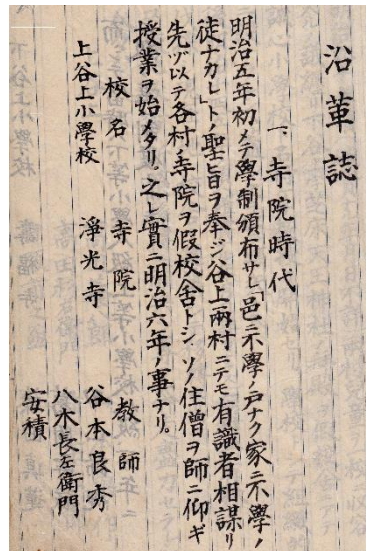 沿革誌
一、寺院時代
明治五年初メテ學制頒布サレ「邑ニ不學ノ戸ナク家ニ不學ノ
徒ナカレ」トノ聖旨ヲ奉ジ谷上兩村ニテモ有識者相謀リ
先ヅ以テ各村ノ寺院ヲ假校舍トシソノ住僧ヲ師ニ仰ギ
授業ヲ始メタリ。之レ實ニ明治六年ノ事ナリ。
校名 寺院 教師
上谷上小學校 淨光寺 谷本良秀
八木長左衛門
安積